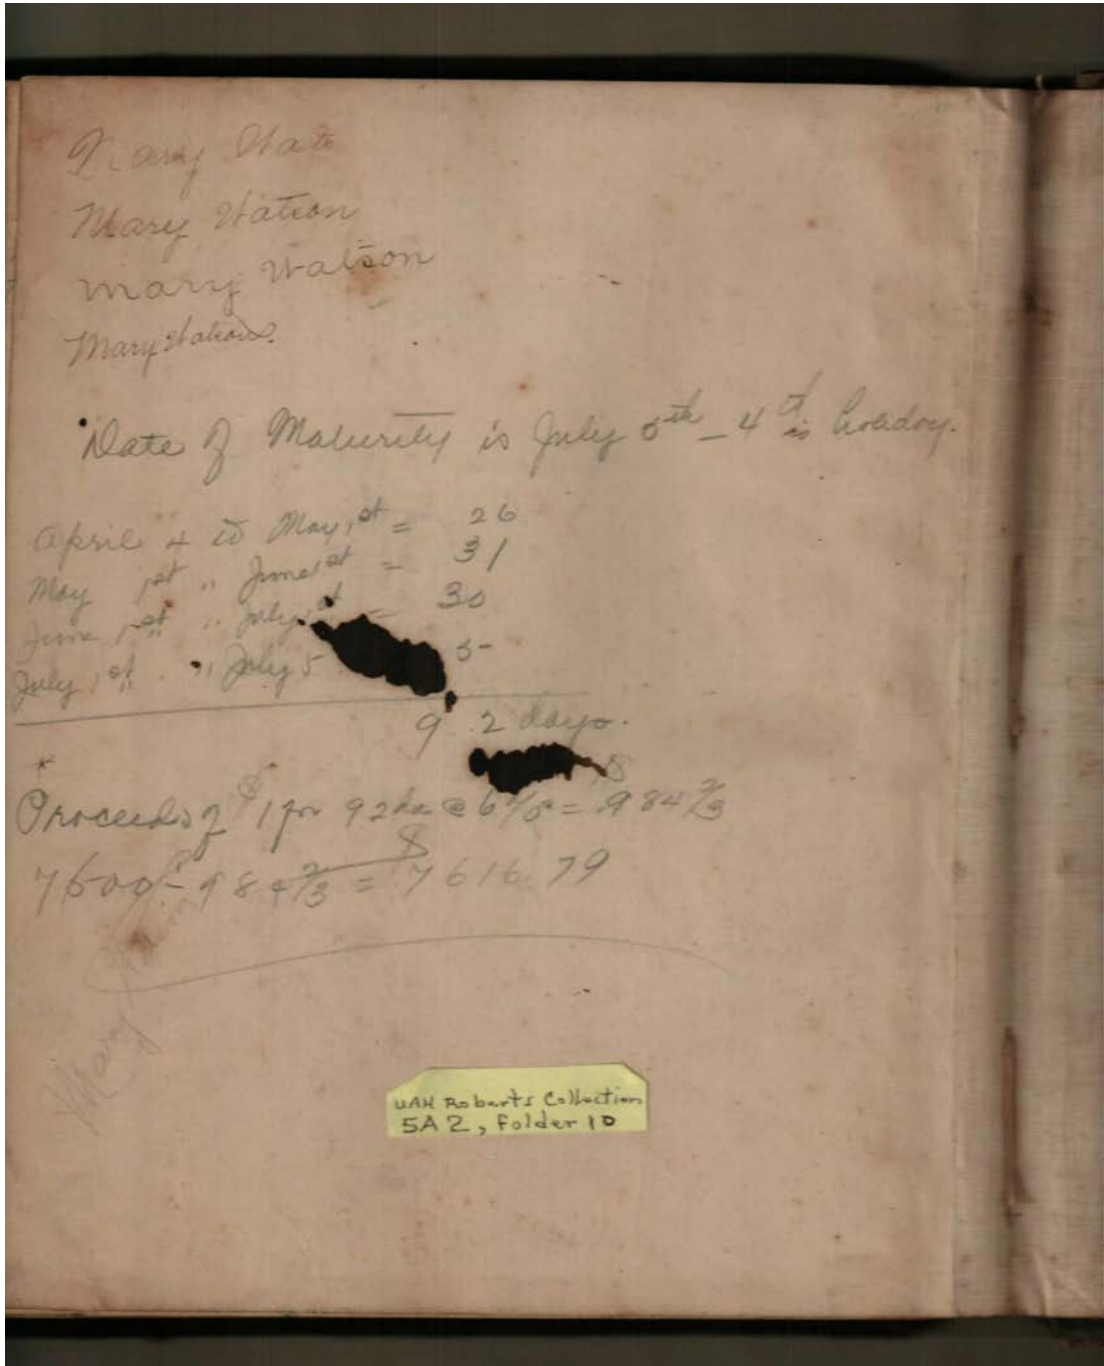 Mary Wats
Mary Watson
Mary Watson
Mary Watson.
Date of Maturity is July 5th – 4th is holiday.
April 4 to May 1st = 26
May 1st " June 1st = 31
June 1st " July 1st = 30
July 1st " July 5 5-
9 2 days.
* Proceeds of $1 for 92 da @ 6% = $.984 2/3
7500 ÷ 984 2/3 = $7616.79
Mary
UAH Roberts Collection
5A2, Folder 10